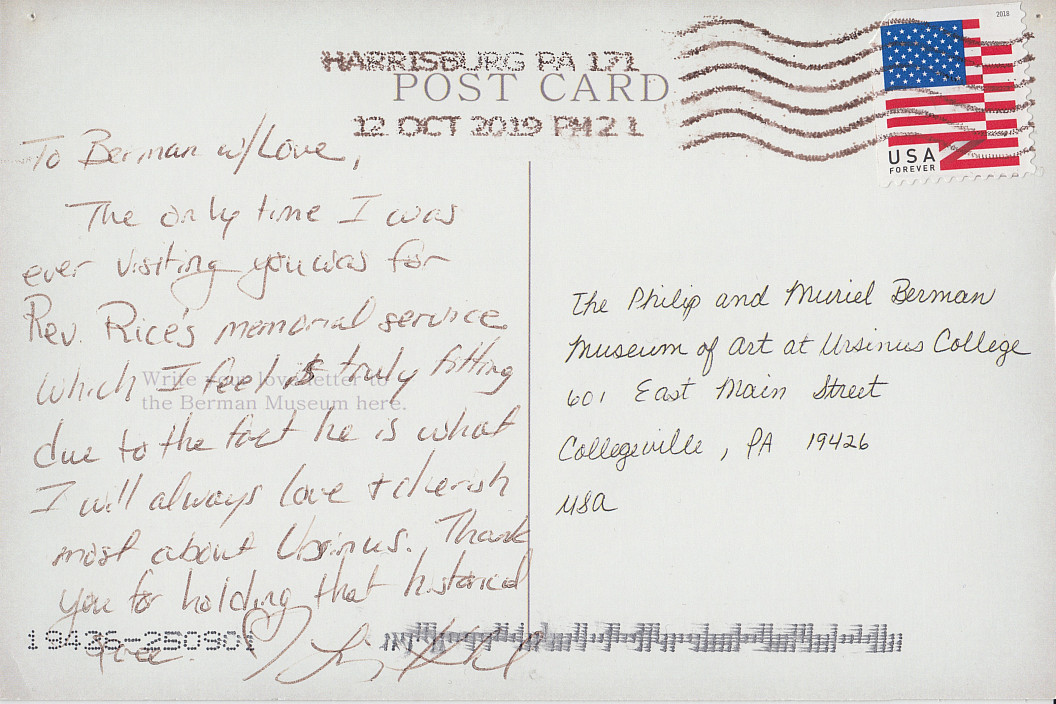 HARRISBURG PA 171
POST CARD
12 OCT 2019 PM 2 L
2018
USA
FOREVER
To Berman w/Love,
The only time I was
ever visiting you was for
Rev. Rice's memorial service
which I feel is truly fitting
due to the fact he is what
I will always love + cherish
most about Ursinus. Thank
you for holding that historical
Write your love letter to
the Berman Museum here.
The Philip and Muriel Berman
Museum of Art at Ursinus College
601 East Main Street
Collegeville, PA 19426
USA
19426-250901